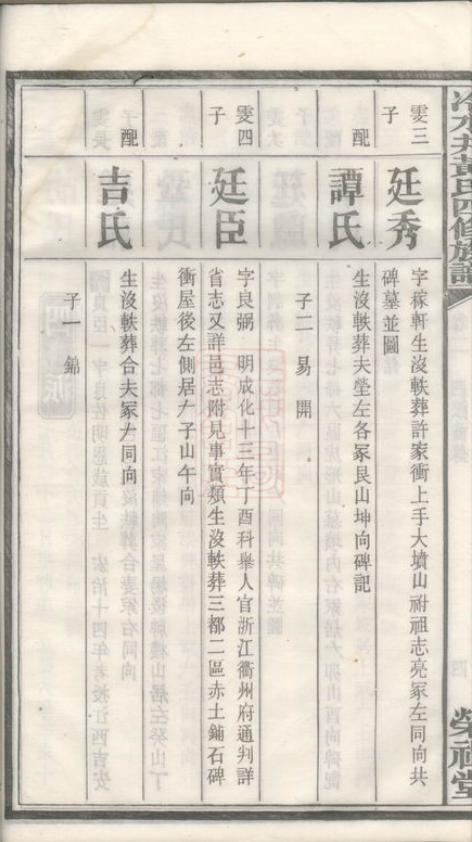 冷水井黃氏四修族譜
榮祿堂
雯三子
廷秀
字稼軒生沒軼葬許家衝上手大墳山祔祖志亮冢左同向共
碑墓並圖
配
譚氏
生沒軼葬夫塋左各冢艮山坤向碑記
子二 易 開
雯四子
廷臣
字良弼 明成化十三年丁酉科舉人官浙江衢州府通判詳
省志又詳邑志附見事實類生沒軼葬三都二區赤土鋪石碑
衝屋後左側居𠂇子山午向
配
吉氏
生沒軼葬合夫冢𠂇同向
子一 錦